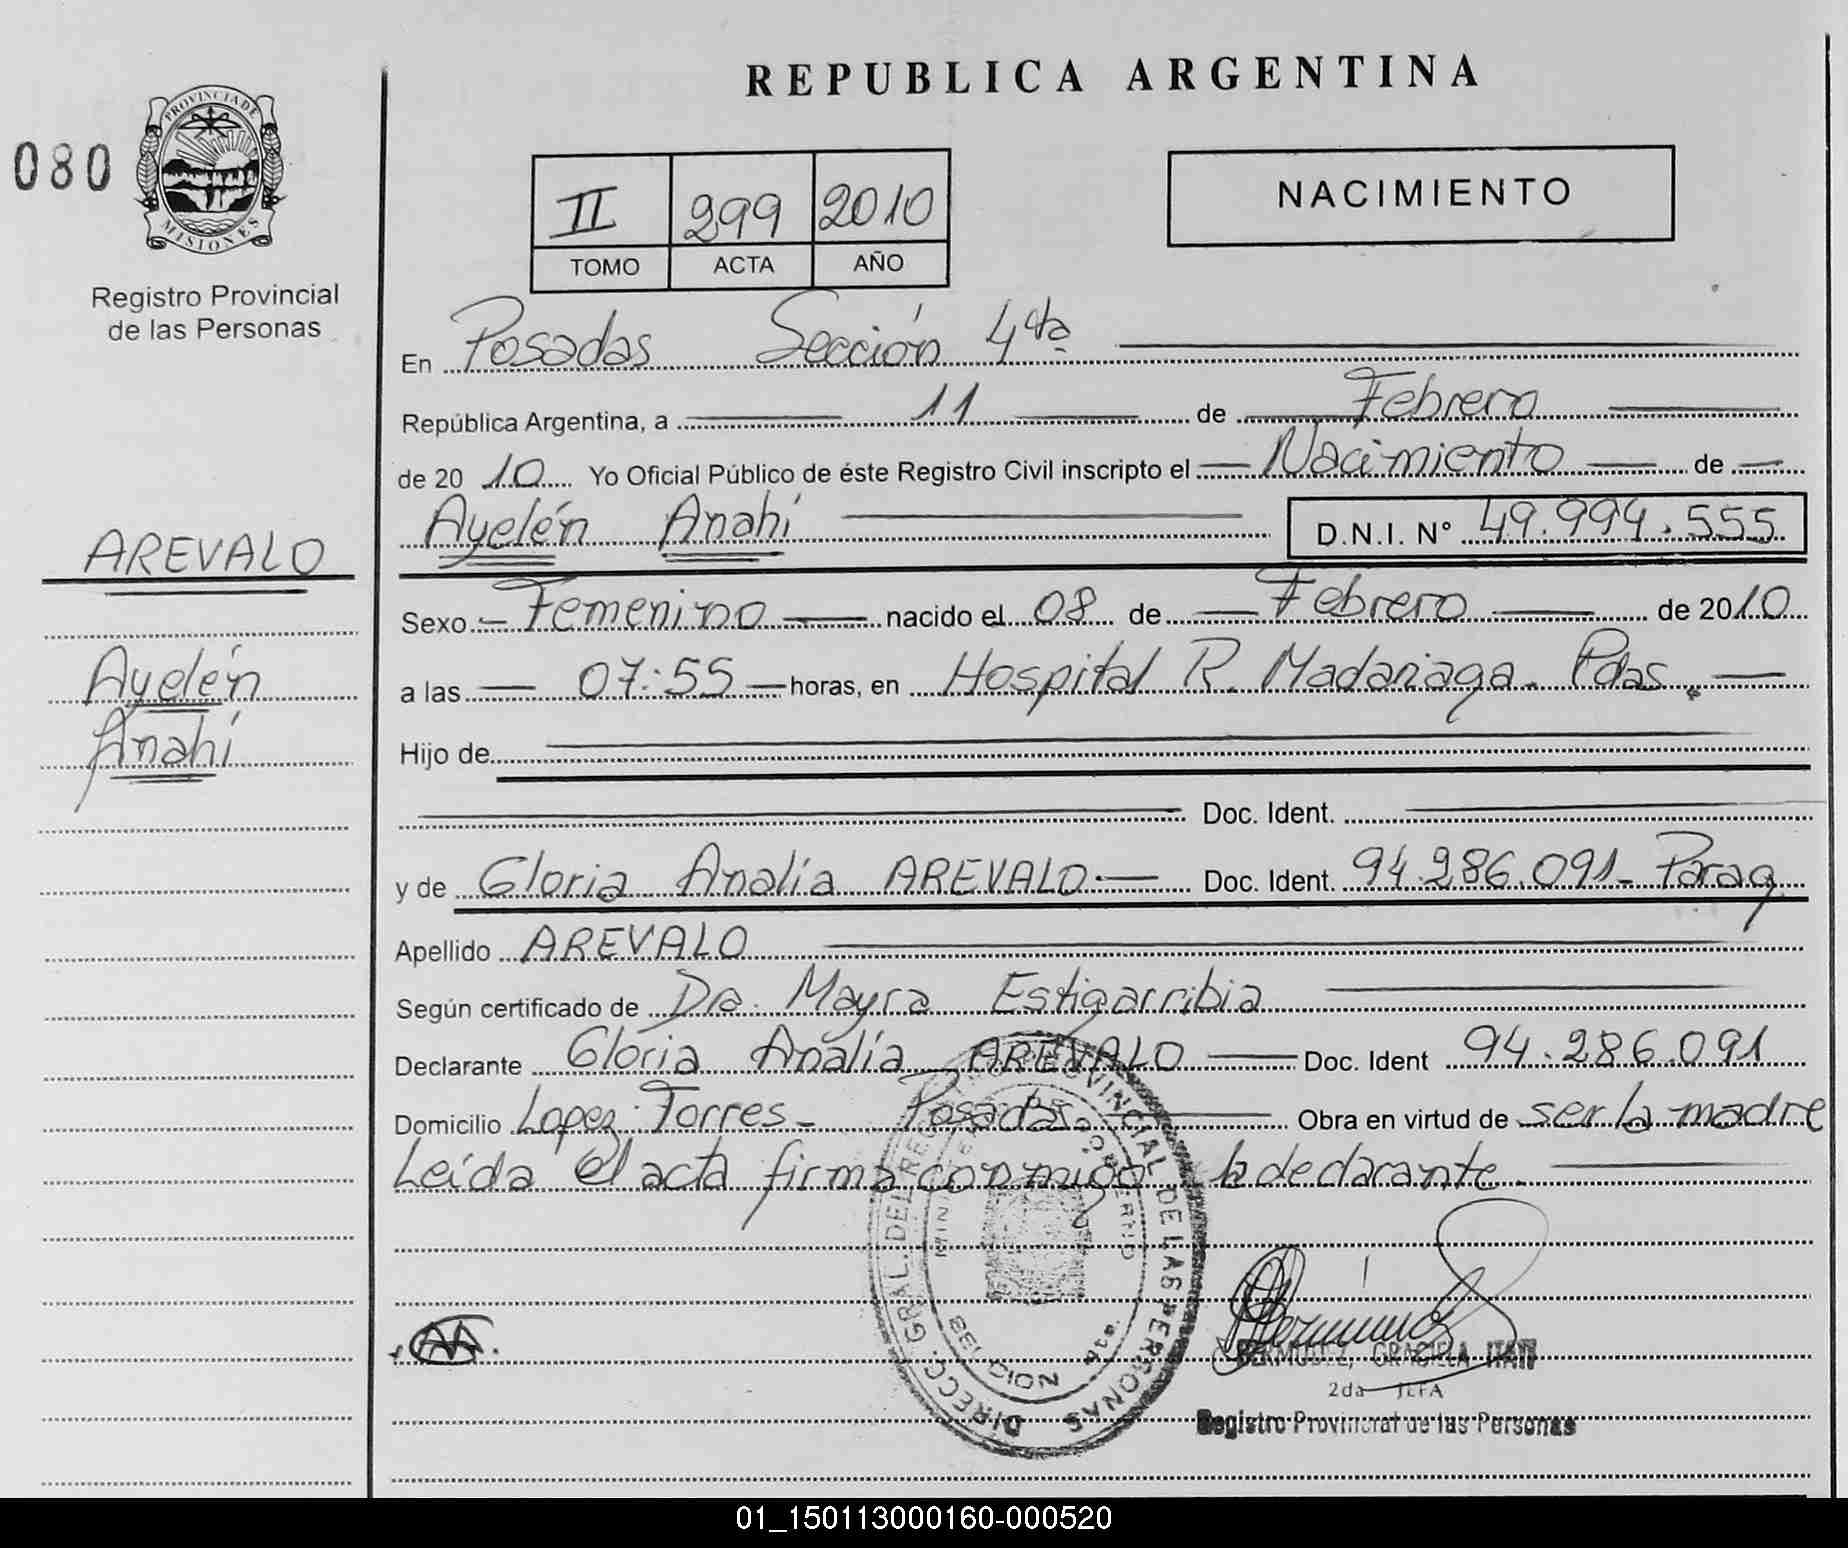 REPUBLICA ARGENTINA
080
PROVINCIA DE
MISIONES
Registro Provincial
de las Personas
II 299 2010
TOMO ACTA AÑO
NACIMIENTO
En Posadas Sección 4ta
República Argentina, a 11 de Febrero
de 2010 Yo Oficial Público de éste Registro Civil inscripto el Nacimiento de
Ayelén Anahí D.N.I. Nº 49.994.555
AREVALO
Ayelén
Anahí
Sexo Femenino nacido el 08 de Febrero de 2010
a las 07:55 horas, en Hospital R. Madariaga. Pdas.
Hijo de
Doc. Ident.
y de Gloria Analía AREVALO Doc. Ident. 94.286.091- Parag
Apellido AREVALO
Según certificado de Dra. Mayra Estigarribia
Declarante Gloria Analía AREVALO Doc. Ident 94.286.091
Domicilio Lopez Torres - Posadas Obra en virtud de ser la madre
Leída el acta firma conmigo la declarante.
DIRECC. GRAL. DEL REGISTRO PROVINCIAL DE LAS PERSONAS
AA.
BERMUDEZ, GRACIELA ITATI
2da JEFA
Registro Provincial de las Personas
01_150113000160-000520